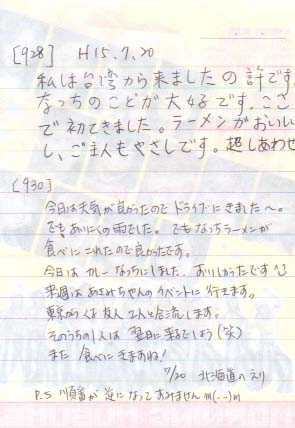 [928] H15.7.20
私は台湾から来ましたの許です。
なっちのことが大好です。ここ
で初てきました。ラーメンがおいし
し、ご主人もやさしです。超しあわせ
[930]
今日は天気が良かったのでドライブにきました〜。
でもあいにくの雨でした。でもなっちラーメンが
食べにこれたので良かったです。
今日はカレーなっちにしました おいしかったです
来週はあさみちゃんのイベントに行きます。
東京からくる友人2人と合流します。
そのうちの1人は翌日に来るでしょう(笑)
また食べにきますね!
7/20 北海道のえり
P.S 順番が逆になってすみませんm(--)m